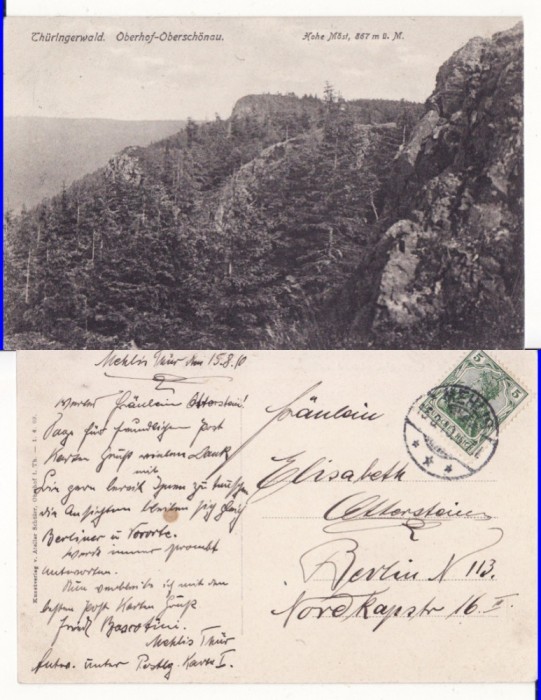 Thüringerwald. Oberhof-Oberschönau.
Hohe Möst, 867 m ü. M.
Mehlis Thür den 15.8.10
wertes Fräulein Otterstein!
Sage für freundlichen Post
Karten Gruß meinen Dank
mit
bin gern bereit Ihnen zu tauschen
die Ansichten
Berliner u Vororte.
werde immer prompt
antworten.
Nun verbleibe ich mit den
besten Post Karten Gruß
Fritz
Mehlis Thür
Antw. unter Postlg. Karte I.
Kunstverlag v. Atelier Schlüter, Oberhof i. Th.
5
MEHLIS
Fräulein
Elisabeth
Otterstein
Berlin N 113.
Nordkapstr 16 I.